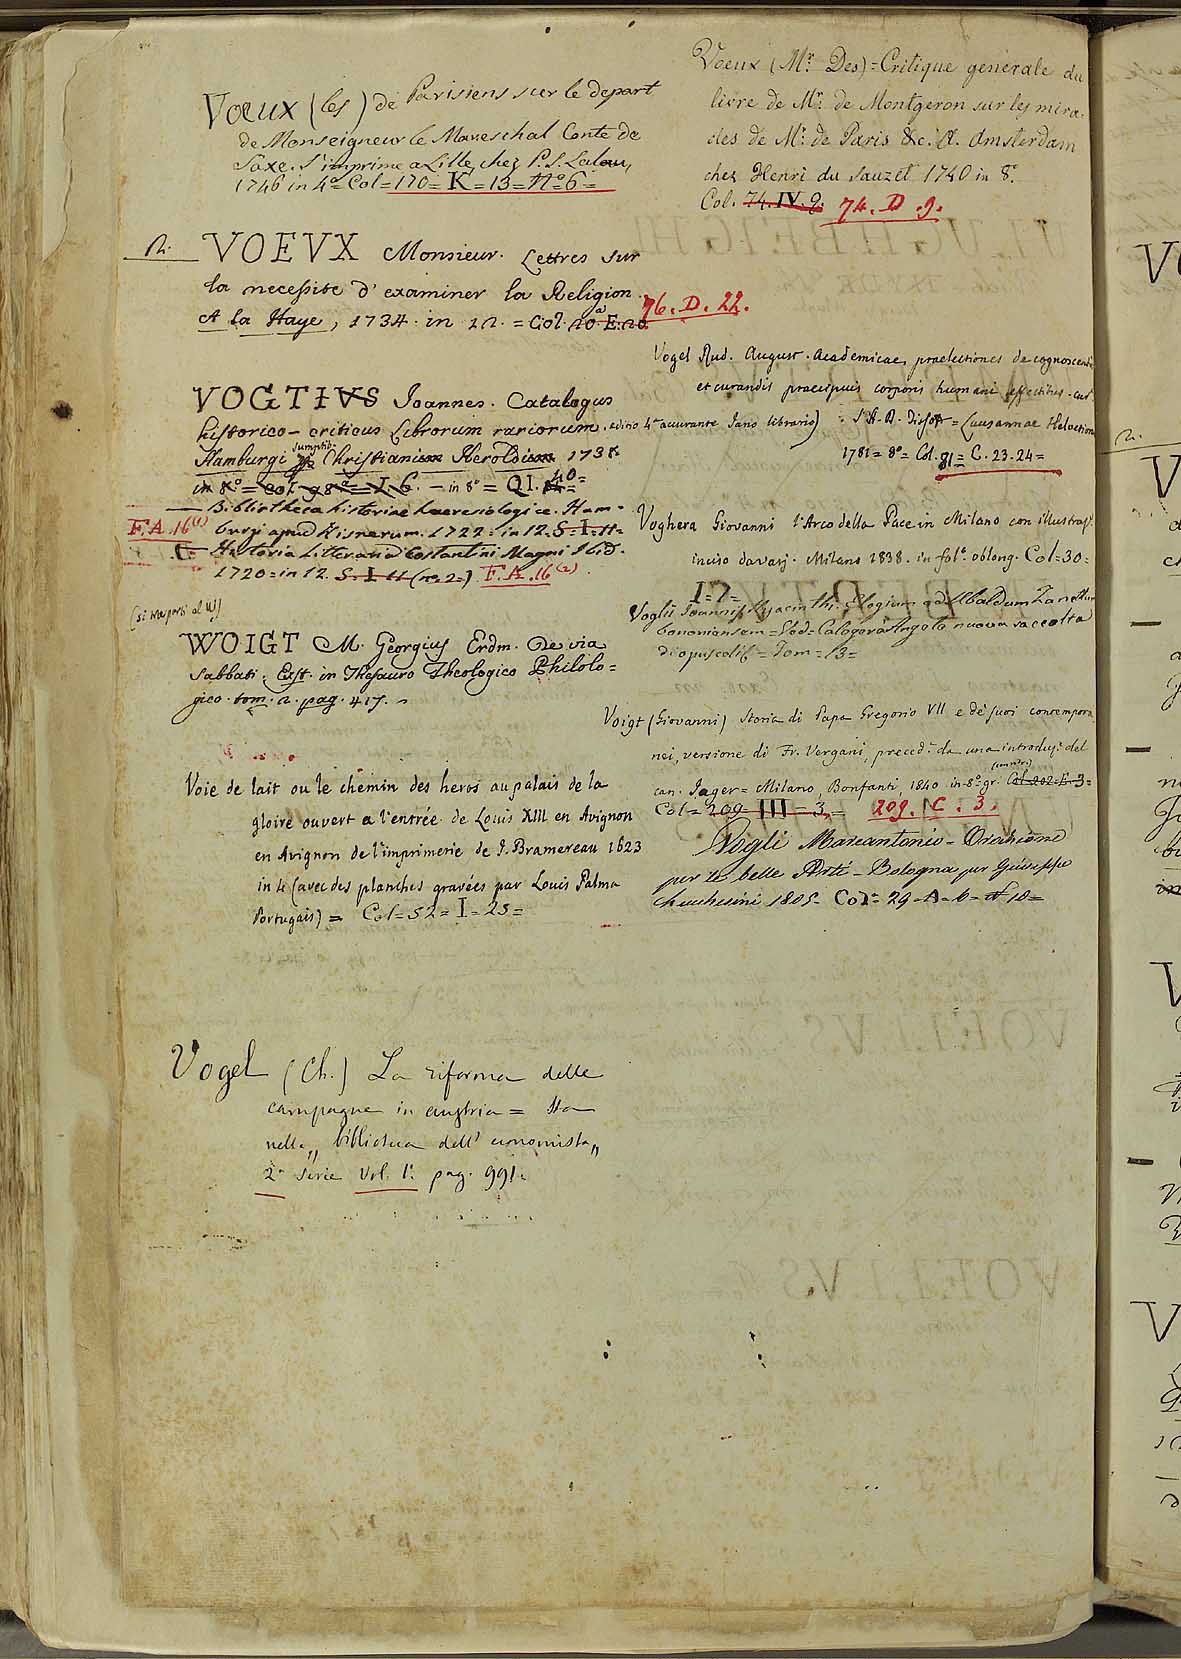 Vœux (les) de Parisiens sur le depart
de Monseigneur le Mareschal Conte de
Saxe. S'imprime a Lille chez P. S. Lalau,
1746 in 4º = Col = 170 = K = 13 = Nº 6 =
VOEVX Monsieur. Lettres sur
la necessite d'examiner la Religion.
A la Haye, 1734. in 12. = Col. 20 E. 20
76. D. 22.
VOGTIVS Joannes. Catalogus
historico-criticus Librorum rariorum.
Hamburgi sumptib. Christianum Heroldium 1738
in 8º = Col. 98 = I. 6. - in 8º = QI. 40 =
Bibliotheca historiae haeresiologice. Ham=
F.A.16(1) burgi apud Kisnerum. 1722 = in 12. S=I=11=
C. Historia Litteraria Costantini Magni Ibid.
1720 = in 12. S. I 11 (nº 2=) F.A.16(2)
WOIGT M. Georgius Erdm. De via
Sabbati. Est. in Thesauro Theologico Philolo=
gico. tom. 2. pag. 417.
Voie de lait ou le chemin des heros au palais de la
gloire ouvert a l'entrée de Louis XIII en Avignon
en Avignon de l'imprimerie de J. Bramereau 1623
in 4 (avec des planches gravées par Louis Palma
Portugais) = Col = 52 = I = 25 =
Vogel (Ch.) La riforma delle
campagne in austria = Sta
nella „ biblioteca dell' economista „
2ª Serie Vol. 1º. pag. 991.
Voeux (Mr. Des) = Critique generale du
livre de Mr. de Montgeron sur les mira=
cles de Mr. de Paris &c. A. Amsterdam
chez Henri du Sauzet 1740 in 8º.
Col. 74. IV. 9. 74. D. 9.
Vogel Rud. August. Academicae praelectiones de cognoscendis
et curandis praecipuis corporis humani affectibus.
editio 4ª accurante Tissot = Lausannae Helvetior.
1781 = 8º = Col. 81 = C. 23. 24 =
Voghera Giovanni l'Arco della Pace in Milano con illustraz.
inciso da varj. Milano 1838. in folº. oblong. Col = 30 =
I = 5 =
Voglii Joannis Hyacinthi. Elogium ad Ubaldum Zanetti
bononiensem = Ved = Calogerà Angelo nuova raccolta
di opuscoli = Tom = 13 =
Voigt (Giovanni) Storia di Papa Gregorio VII e de' suoi contempora
nei, versione di Fr. Vergani, preced. da una introduz. del
can. Jager = Milano, Bonfanti, 1840 in 8º gr. Col 202 E 3 =
Col = 209 III = 3 = 209. C. 3.
Vogli Marcantonio - Orazione
per le belle Arti - Bologna per Giuseppe
Lucchesini 1805. Col = 29 = A = 6 = Nº 18 =